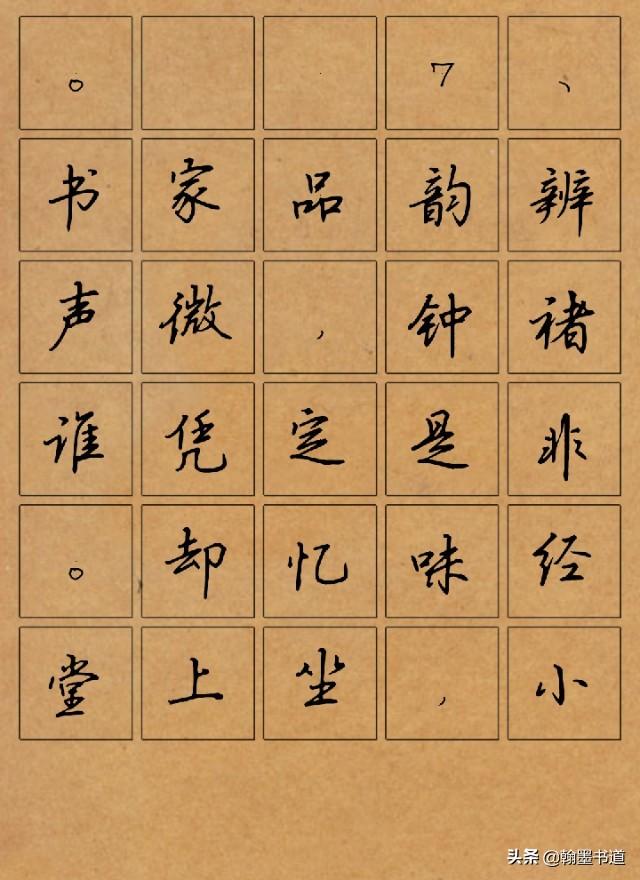 。 7、
书家品韵辨
声微，钟褚
谁凭定是非
。却忆味经
堂上坐，小
头条 @翰墨书道